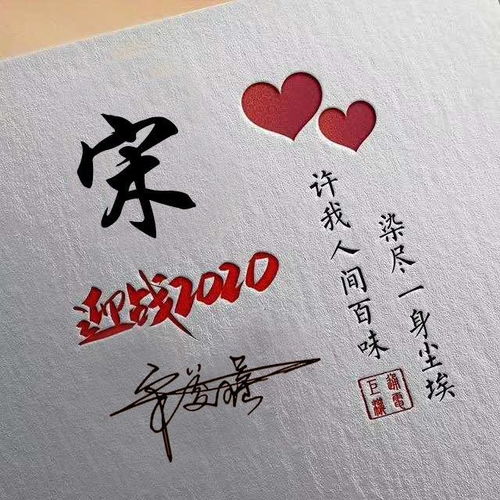 宋
迎战2020
许我人间百味
染尽一身尘埃